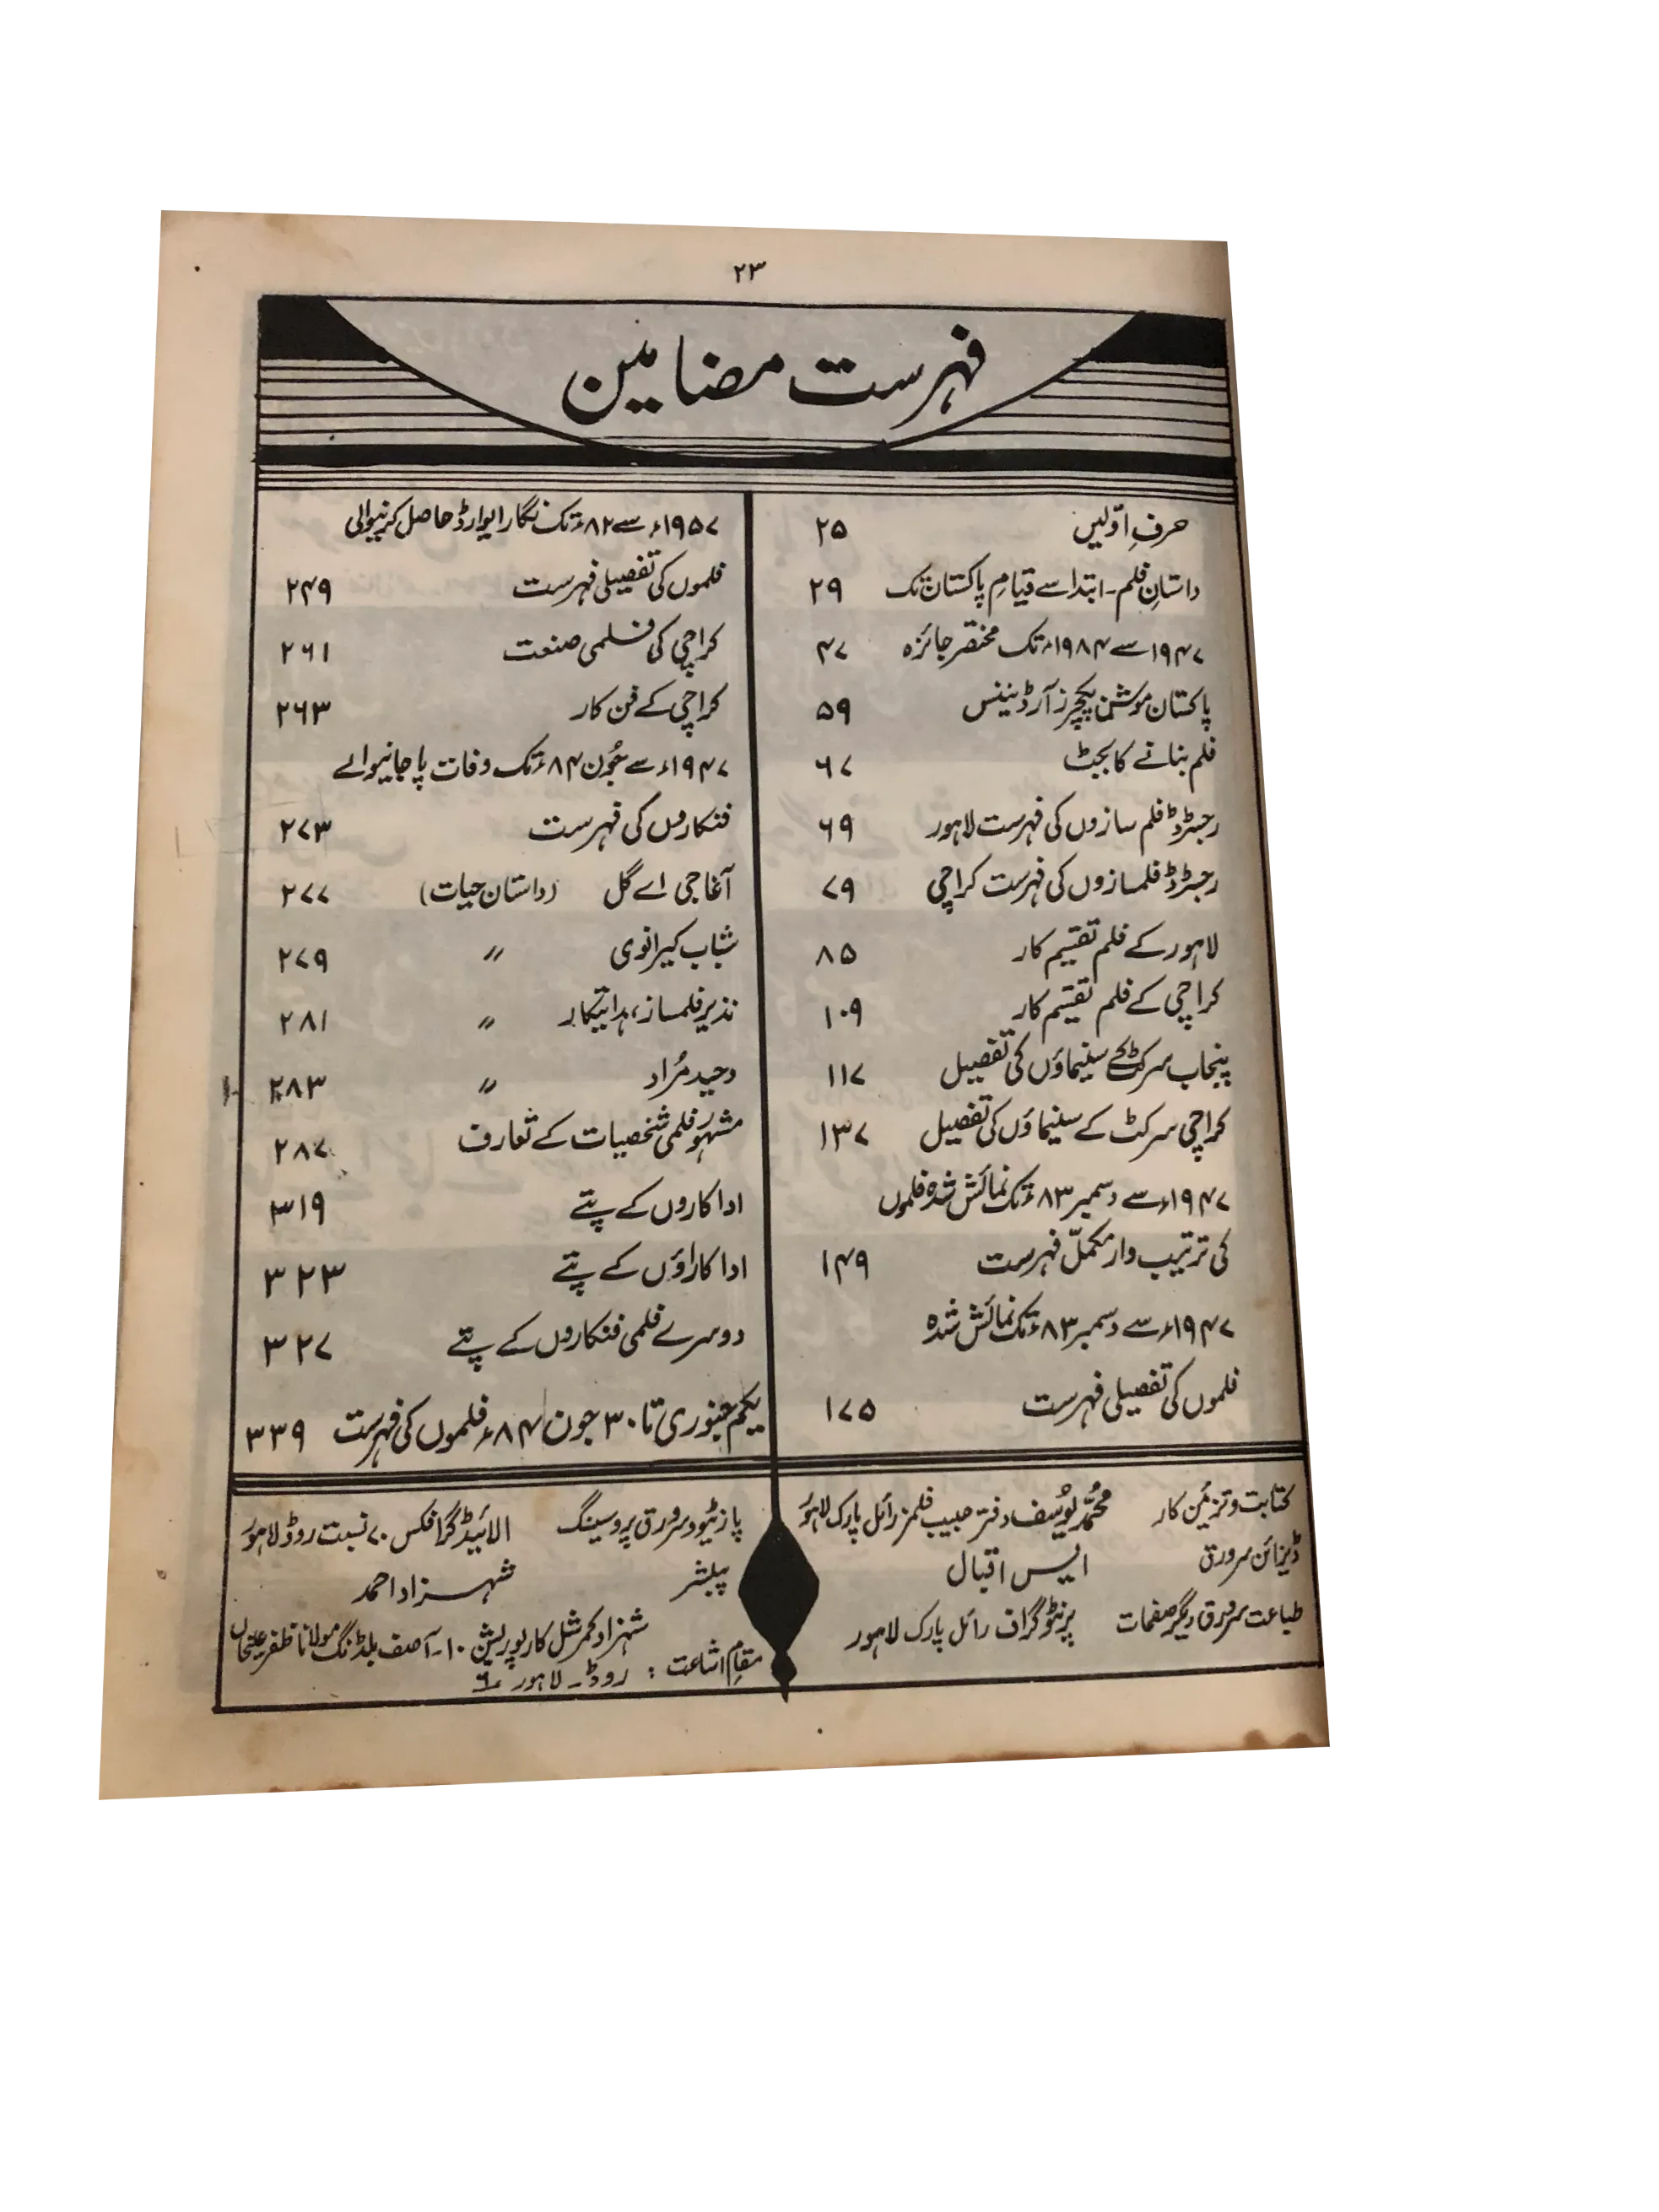 ۲۳
فہرست مضامین
حرفِ اوّلیں ۲۵
داستانِ فلم۔ ابتدا سے قیامِ پاکستان تک ۲۹
۱۹۴۷ء سے ۱۹۸۴ء تک مختصر جائزہ ۴۷
پاکستان موشن پکچرز آرڈیننس ۵۹
فلم بنانے کا بجٹ ۶۷
رجسٹرڈ فلم سازوں کی فہرست لاہور ۶۹
رجسٹرڈ فلمسازوں کی فہرست کراچی ۷۹
لاہور کے فلم تقسیم کار ۸۵
کراچی کے فلم تقسیم کار ۱۰۹
پنجاب سرکٹ کے سینماؤں کی تفصیل ۱۱۷
کراچی سرکٹ کے سینماؤں کی تفصیل ۱۳۷
۱۹۴۷ء سے دسمبر ۸۳ء تک نمائش شدہ فلموں
کی ترتیب وار مکمل فہرست ۱۴۹
۱۹۴۷ء سے دسمبر ۸۳ء تک نمائش شدہ
فلموں کی تفصیلی فہرست ۱۷۵
۱۹۵۷ء سے ۸۲ء تک نگار ایوارڈ حاصل کرنیوالی
فلموں کی تفصیلی فہرست ۲۴۹
کراچی کی فلمی صنعت ۲۶۱
کراچی کے فن کار ۲۶۳
۱۹۴۷ء سے جُون ۸۴ء تک وفات پا جانیوالے
فنکاروں کی فہرست ۲۷۳
آغا جی اے گل (داستان حیات) ۲۷۷
شباب کیرانوی 〃 ۲۷۹
نذیر فلمساز، ہدایتکار 〃 ۲۸۱
وحید مُراد 〃 ۲۸۳
مشہور فلمی شخصیات کے تعارف ۲۸۷
اداکاروں کے پتے ۳۱۹
اداکاراؤں کے پتے ۳۲۳
دوسرے فلمی فنکاروں کے پتے ۳۲۷
یکم جنوری تا ۳۰ جون ۸۴ء فلموں کی فہرست ۳۳۹
کتابت و تزئین کار محمّد یُوسف دفتر حبیب فلمز رائل پارک لاہور
ڈیزائن سرورق ایس اقبال
طباعت سرورق و دیگر صفحات پرنٹو گراف رائل پارک لاہور
پازیٹیو و سرورق پروسینگ الائیڈ گرافکس ۷۰ نسبت روڈ لاہور
پبلشر شہزاد احمد
مقامِ اشاعت : شہزاد کمرشل کارپوریشن ۱۰۔ آصف بلڈنگ مولانا ظفر علیخاں
روڈ۔ لاہور ۶